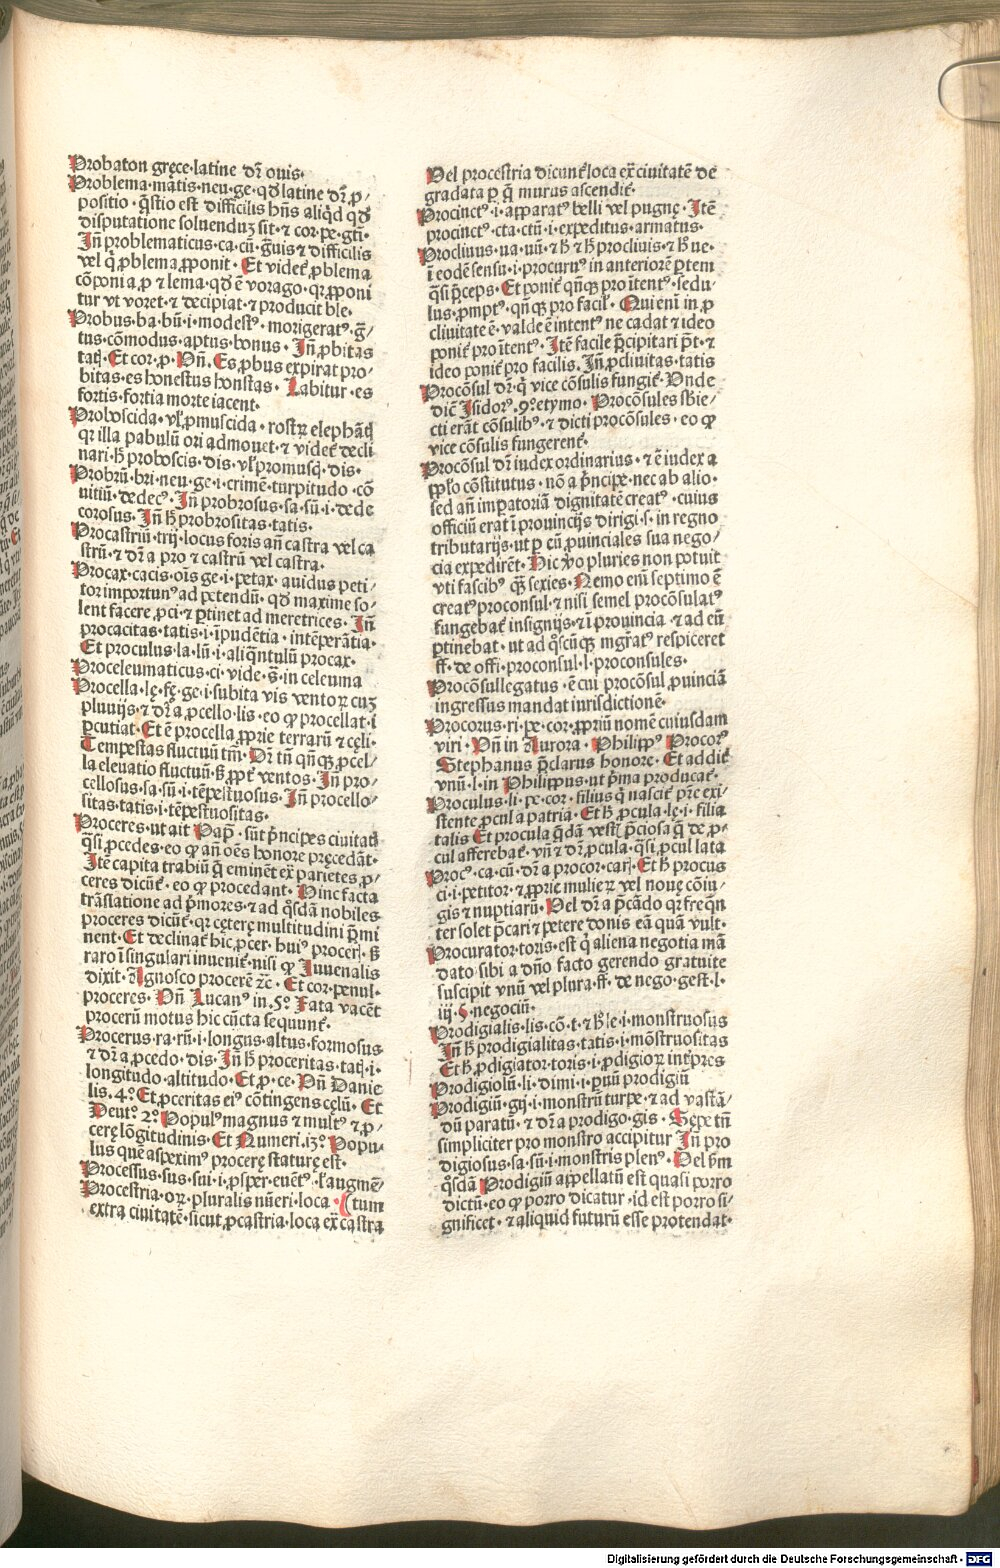 Probaton gręce·latine dr̄ ouis·
Problema·matis·neu·ge·qd̄ latine dr̄ ꝓ/
positio·q̄stio est difficilis hn̄s aliqd̄ qd̄
disputatione soluenduꝫ sit·⁊ cor·pe·gti·
Jn̄ problematicus·ca·cū·g̈uis ⁊ difficilis
vel q̇ ꝓblema ꝓponit· Et videt᷑ ꝓblema
cōponi a ꝓ ⁊ lema·qd̄ ē vorago·qꝛ ꝓponi
tur vt voret·⁊ decipiat·⁊ producit ble·
Probus·ba·bū·i·modestꝰ·morigeratꝰ·g̈/
tus·cōmodus·aptus·bonus·Jn̄ ꝓbitas
tatꝭ· Et cor·ꝓ·Vn̄·Es ꝓbus expirat pro/
bitas·es honestus honstas· Labitur·es
fortis·fortia morte iacent·
Proboscida·vl̓ ꝓmuscida·rostꝝ elephātꝭ
qꝛ illa pabulū ori admouet·⁊ videt᷑ decli
nari·h̄ proboscis·dis·vl̓ promuscꝭ·dis·
Probrū·bri·neu·ge·i·crimē·turpitudo·cō
uitiū·dedecꝰ·Jn̄ probrosus·sa·sū·i·dede
corosus·Jn̄ h̄ probrositas·tatis·
Procastriū·trij·locus foris an̄ castra vel ca
strū·⁊ dr̄ a pro ⁊ castrū vel castra·
Procax·cacis·oīs ge·i·petax·auidus peti/
tor importunꝰ ad petendū·qd̄ maxime so/
lent facere ꝓci·⁊ ꝑtinet ad meretrices·Jn̄
procacitas·tatis·i·īpudētia·intēperātia·
Et proculus·la·lū·i·aliq̄ntulū procax·
Proceleumaticus·ci·vide·s̄·in celeuma
Procella·lę·fę·ge·i·subita vis ventoꝝ cuꝫ
pluuijs·⁊ dr̄ a ꝓcello·lis·eo ꝙ procellat·i
ꝑcutiat·Et ē procella ꝓprie terrarū ⁊ cęli·
Tempestas fluctuū tm̄·Dr̄ tn̄ qn̄qꝫ ꝓcel/
la eleuatio fluctuū·s̄ ꝓpt̓ ventos·Jn̄ pro/
cellosus·sa·sū·i·tēpestuosus·Jn̄ procello/
sitas·tatis·i·tēpestuositas·
Proceres·ut ait Pap̄·sūt pn̄cipes ciuitatꝭ
q̄si ꝓcedes·eo ꝙ an̄ oēs honore pręcedāt·
Jtē capita trabiū q̄ eminēt ex parietes ꝓ/
ceres dicūt᷑·eo ꝙ procedant·Hinc facta
trāslatione ad pͥmores·⁊ ad qͦsdā nobiles
proceres dicūt᷑·qꝛ cęterę multitudini p̄mi
nent·Et declinat᷑ hic ꝓcer·huiꝰ procerꝭ·s̄
raro ī singulari inuenit᷑·nisi ꝙ Juuenalis
dixit·Agnosco procerē ⁊c̄·Et cor·penul·
proceres·Vn̄ Lucanꝰ in·5ͦ·Fata vacēt
procerū motus hic cūcta sequunt᷑·
Procerus·ra·rū·i·longus·altus·formosus
⁊ dr̄ a ꝓcedo·dis·Jn̄ h̄ proceritas·tatꝭ·i·
longitudo·altitudo·Et ꝓ·ce·Vn̄ Danie
lis·4ͦ·Et ꝓceritas eiꝰ cōtingens cęlū·Et
Deutͦ·2ͦ·Populꝰ magnus ⁊ multꝰ ⁊ ꝓ/
cerę lōgitudinis·Et Numeri·i3ͦ·Popu/
lus quē aspeximꝰ procerę staturę est·
Processus·sus·sui·i·ꝓsper·euētꝰ·l̓ augmē/
Procestria·oꝝ·pluralis nūeri·loca·(tum
extra ciuitatē·sicut ꝓcastria·loca ex̄ castra
Vel procestria dicunt᷑ loca ex̄ ciuitatē de
gradata ꝑ q̄ murus ascendit᷑·
Procinctꝰ·i·apparatꝰ belli vel pugnę·Jtē
procinctꝰ·cta·ctū·i·expeditus·armatus·
Procliuus·ua·uū·⁊ h̄ ⁊ h̄ procliuis·⁊ h̄ ue·
ī eodē sensu·i·procuruꝰ in anteriorē ꝑtem
q̄si p̄ceps·Et ponit᷑ qn̄qꝫ pro ītentꝰ·sedu/
lus·ꝓmptꝰ·qn̄qꝫ pro facil̓·Qui enī in ꝓ
cliuitate ē·valde ē intentꝰ ne cadat·⁊ ideo
ponit᷑ pro ītentꝰ·Jtē facile p̄cipitari pōt·⁊
ideo ponit᷑ pro facilis·Jn̄ ꝓcliuitas·tatis
Procōsul dr̄·q̇ vice cōsulis fungit᷑·Vnde
dic̄ Jsidorꝰ·9ͦ·etymo·Procōsules sb̄ie/
cti erāt cōsulibꝰ·⁊ dicti procōsules·eo ꝙ
vice cōsulis fungerent᷑·
Procōsul dr̄ iudex ordinarius·⁊ ē iudex a
pp̄lo cōstitutus·nō a pͥncipe·nec ab alio·
sed an̄ imperatoriā dignitatē creatꝰ·cuius
officiū erat ī prouincijs dirigi·s·in regno
tributarijs·ut ꝑ eū ꝓuinciales sua nego/
cia expedirēt·Hic v̊o pluries non potuit
vti fascibꝰ qꝫ sexies·Nemo enī septimo ē
creatꝰ proconsul·⁊ nisi semel procōsulatꝰ
fungebat᷑ insignijs·⁊ ī prouincia·⁊ ad eū
ꝑtinebat·ut ad qͦscūqꝫ mgr̄atꝰ respiceret
ff·de offi·proconsul·l·proconsules·
Procōsul legatus·ē cui procōsul ꝓuinciā
ingressus mandat iurisdictionē·
Procorus·ri·pe·cor·ꝓpriū nomē cuiusdam
viri·Vn̄ in Aurora·Philippꝰ Procorꝰ
Stephanus p̄clarus honore·Et addit᷑
vnū·l·in Philippus·ut pͥma producat᷑·
Proculus·li·pe·cor·filius q̇ nascit᷑ pr̄e exi/
stente ꝓcul a patria·Et h̄ ꝓcula·lę·i·filia
talis Et procula q̄dā vestꝭ pͥciosa q̄ de ꝓ·
cul afferebat᷑·vn̄ ⁊ dr̄ ꝓcula·q̄si ꝓcul lata
Procꝰ·ca·cū·dr̄ a procor·carꝭ·Et h̄ procus
ci·i·petitor·⁊ ꝓprie mulieꝝ vel nouę cōiu/
gis ⁊ nuptiarū·Vel dr̄ a p̄cādo qꝛ freqn̄
ter solet p̄cari ⁊ petere donis eā quā vult·
Procurator·toris·est q̇ aliena negotia mā
dato sibi a dn̄o facto gerendo gratuite
suscipit vnū vel plura·ff·de nego·gest·l·
iij·§·negociū·
Prodigialis·lis·cō·t·⁊ h̄ le·i·monstruosus
Jn̄ h̄ prodigialitas·tatis·i·mōstruositas
Et h̄ ꝓdigiator·toris·i·ꝓdigioꝝ int̓pres
Prodigiolū·li·dimi·i·ꝑuū prodigiū
Prodigiū·gij·i·monstrū turpe·⁊ ad vastā/
dū paratū·⁊ dr̄ a prodigo·gis·Sępe tn̄
simpliciter pro monstro accipitur Jn̄ pro
digiosus·sa·sū·i·monstris plenꝰ·Vel sm̄
qͦsdā Prodigiū appellatū est quasi porro
dictū·eo ꝙ porro dicatur·id est porro si/
gnificet·⁊ aliquid futurū esse protendat·
Digitalisierung gefördert durch die Deutsche Forschungsgemeinschaft - DFG